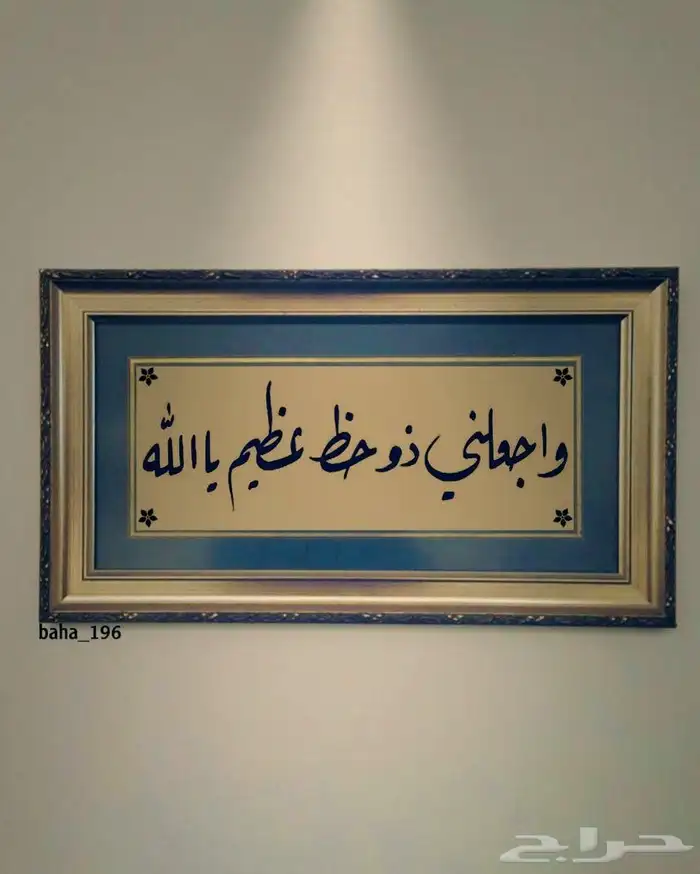 واجعلني ذو حظ عظيم يا الله
baha_196
حراج